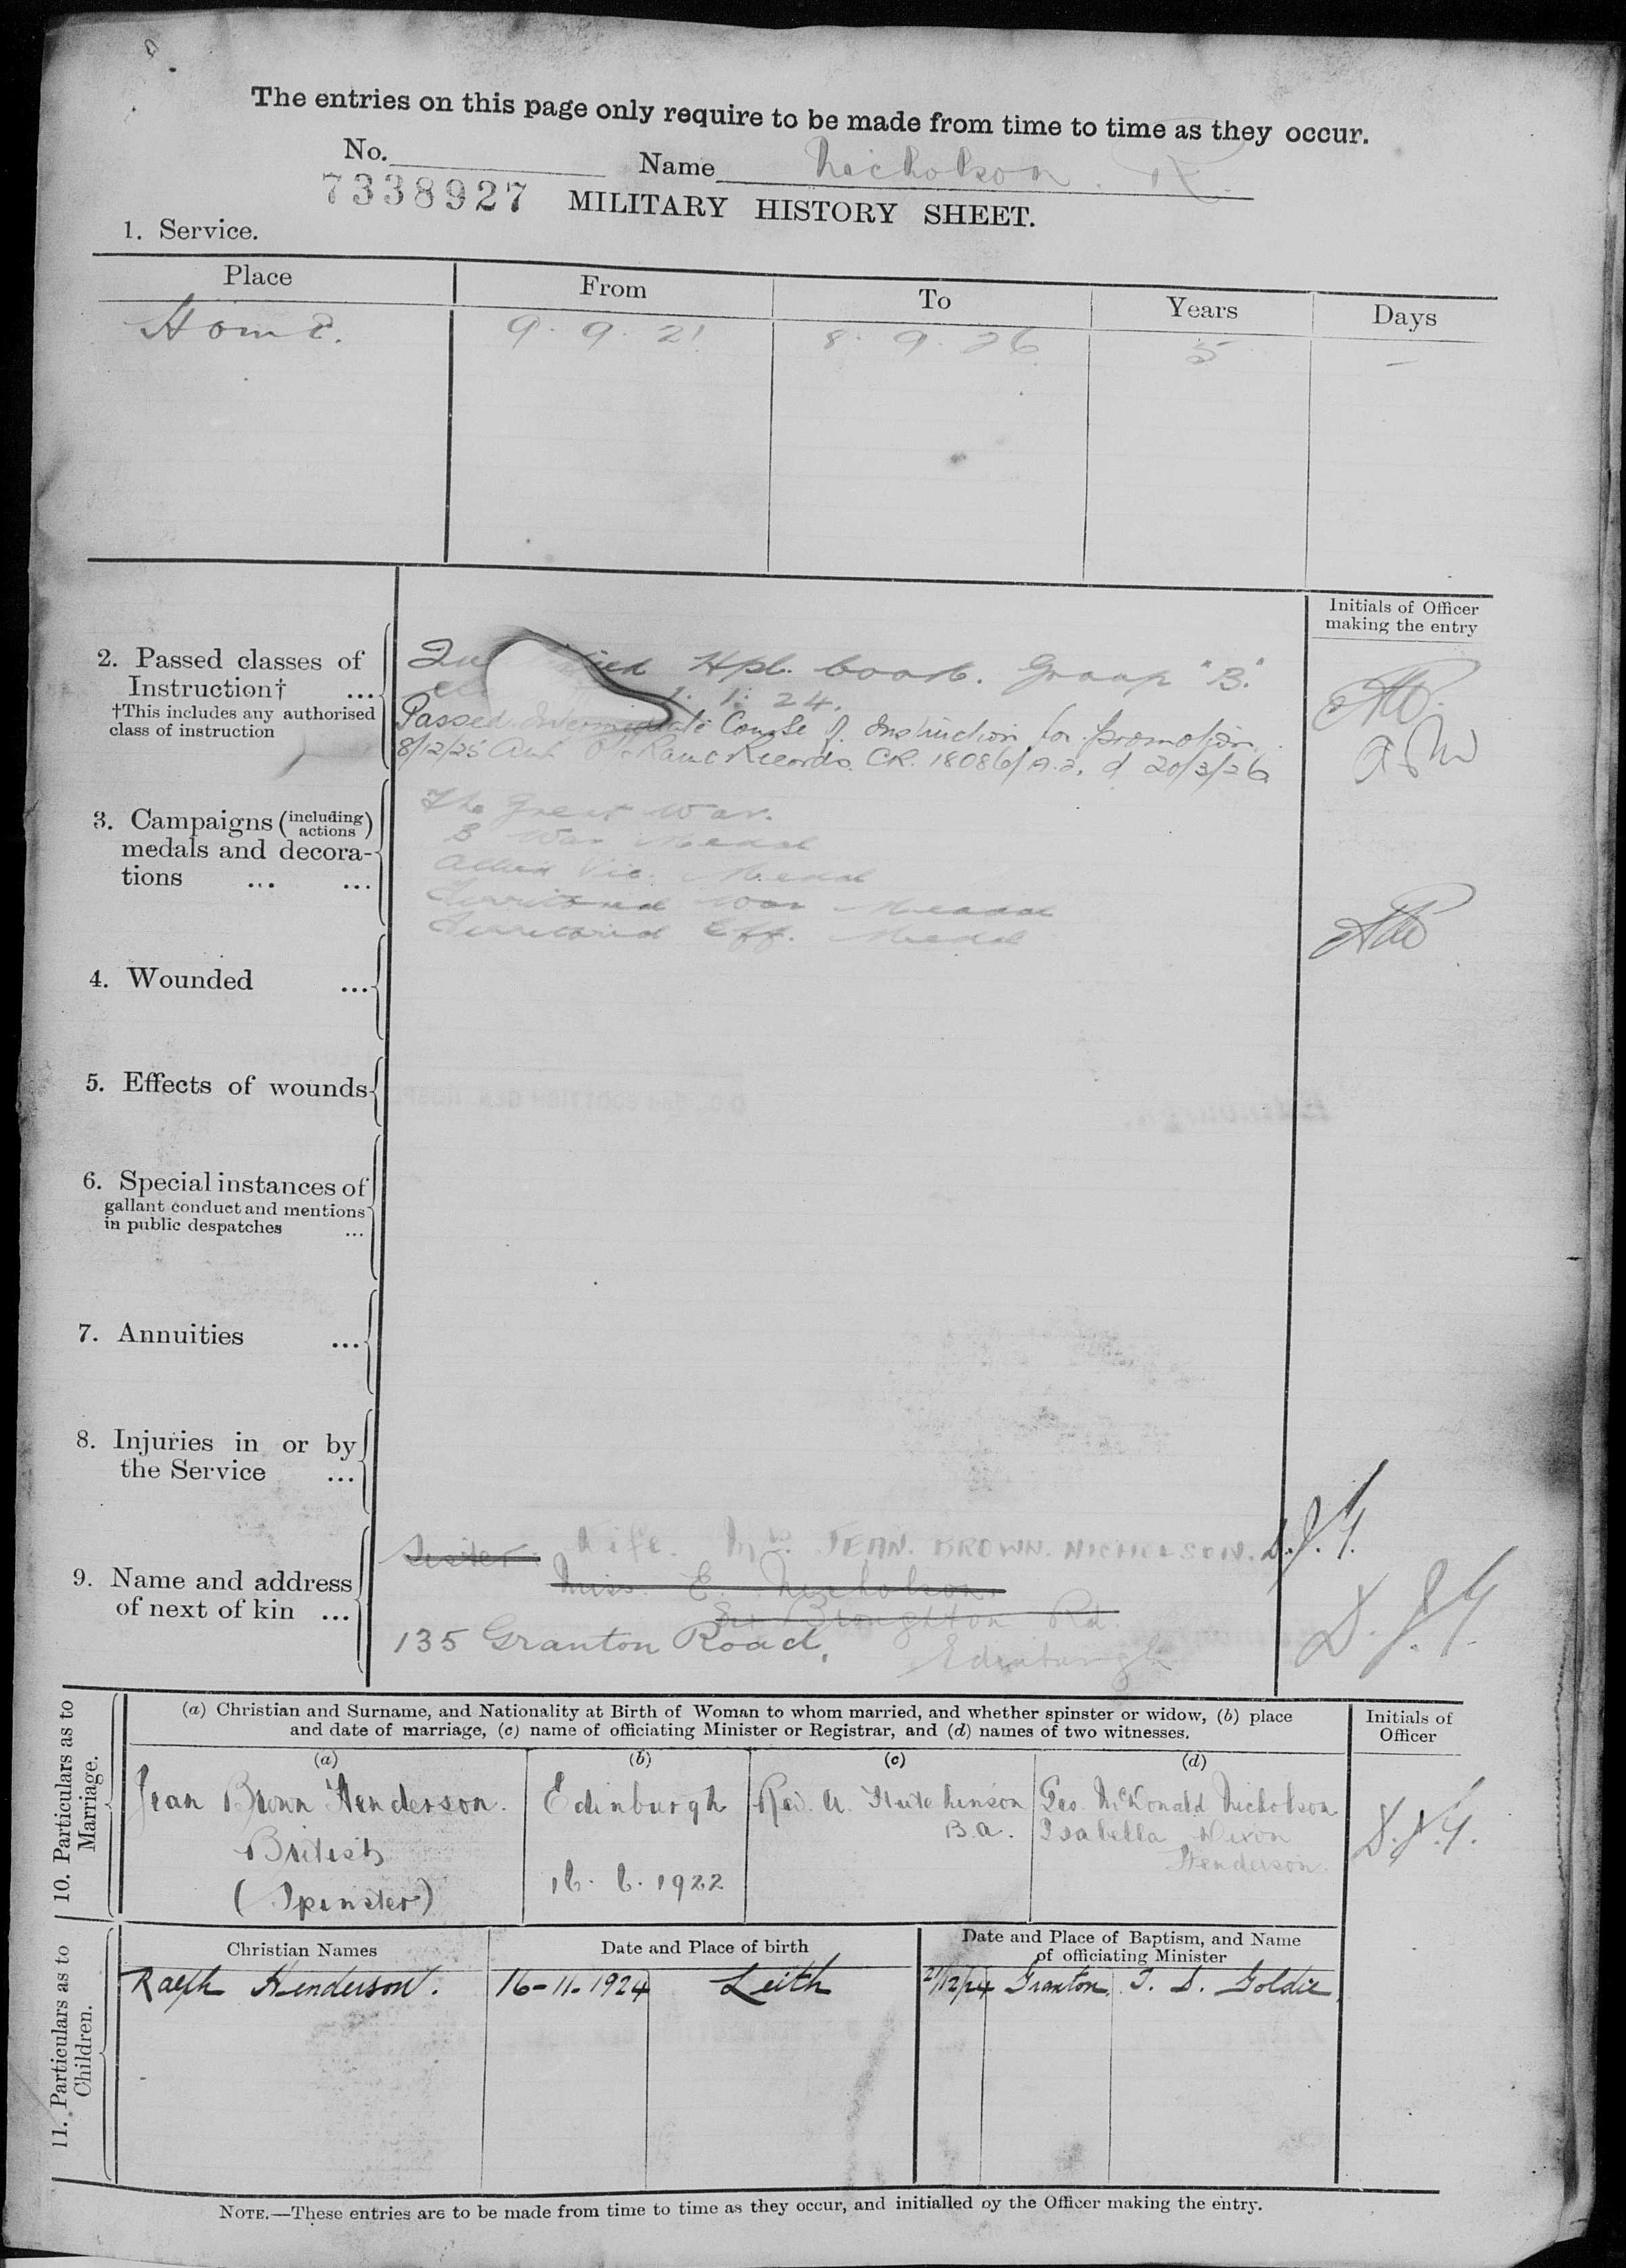 The entries on this page only require to be made from time to time as they occur.
No. Name Nicholson. R.
7338927 MILITARY HISTORY SHEET.
1. Service.
Place From To Years Days
Home. 9. 9. 21 8. 9. 26 5 -
Initials of Officer
making the entry
2. Passed classes of
Instruction† ...
†This includes any authorised
class of instruction
Hpl. Group "B."
1. 1. 24.
Passed Intermediate Course of Instruction for promotion
8/12/25 Records. CR. 18086/A.2. d 20/3/26
3. Campaigns (including actions)
medals and decora-
tions ... ...
The Great War.
B War Medal
Allied Vic. Medal
Territorial War Medal
Territorial Eff. Medal
4. Wounded ...
5. Effects of wounds
6. Special instances of
gallant conduct and mentions
in public despatches ...
7. Annuities ...
8. Injuries in or by
the Service ...
9. Name and address
of next of kin ...
Sister Wife. Mrs. JEAN. BROWN. NICHOLSON.
Miss. E. Nicholson
Broughton Rd.
135 Granton Road, Edinburgh
10. Particulars as to Marriage.
(a) Christian and Surname, and Nationality at Birth of Woman to whom married, and whether spinster or widow, (b) place
and date of marriage, (c) name of officiating Minister or Registrar, and (d) names of two witnesses.
Initials of
Officer
(a) (b) (c) (d)
Jean Brown Henderson. Edinburgh Rev. A. Hutchinson Geo. McDonald Nicholson
B.A. Isabella Nixon
British Henderson.
16. 6. 1922
(Spinster)
11. Particulars as to Children.
Christian Names Date and Place of birth Date and Place of Baptism, and Name
of officiating Minister
Ralph Henderson. 16-11-1924 Leith 21/12/24 Granton. T. S. Goldie
NOTE.—These entries are to be made from time to time as they occur, and initialled by the Officer making the entry.